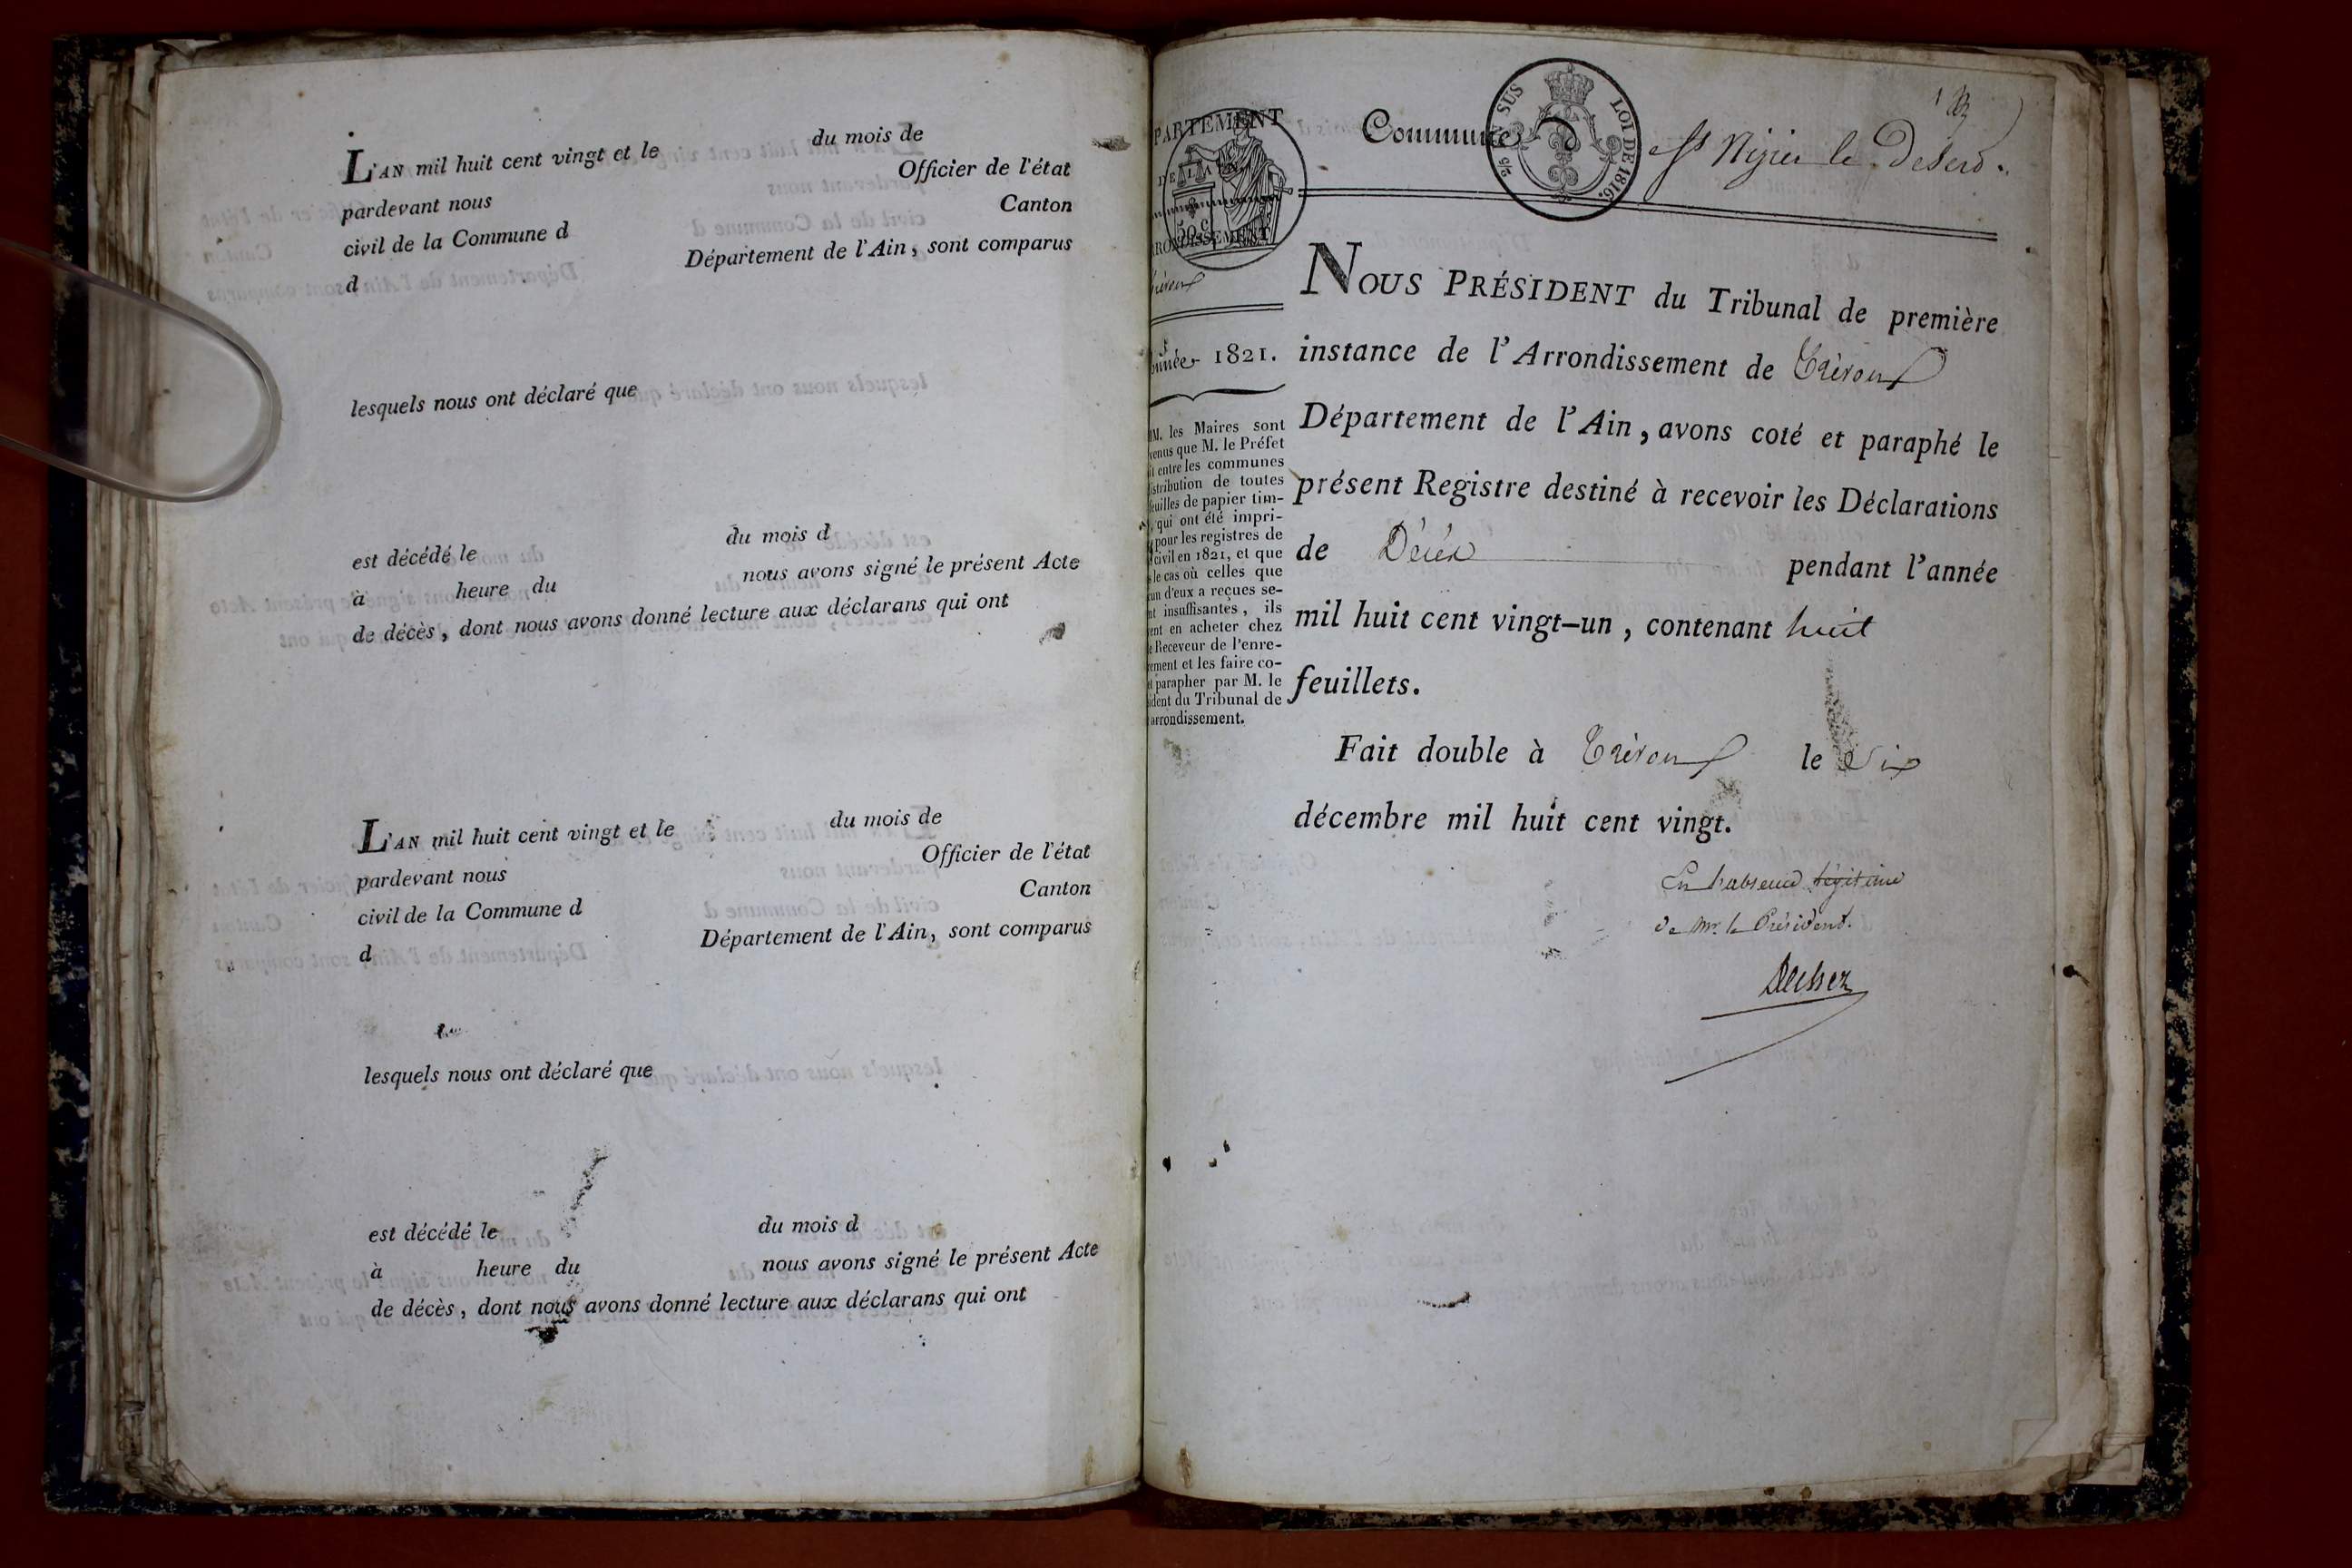 L'AN mil huit cent vingt et le du mois de
pardevant nous Officier de l'état
civil de la Commune d Canton
d Département de l'Ain, sont comparus
lesquels nous ont déclaré que
est décédé le du mois d
à heure du nous avons signé le présent Acte
de décès, dont nous avons donné lecture aux déclarans qui ont
L'AN mil huit cent vingt et le du mois de
pardevant nous Officier de l'état
civil de la Commune d Canton
d Département de l'Ain, sont comparus
lesquels nous ont déclaré que
est décédé le du mois d
à heure du nous avons signé le présent Acte
de décès, dont nous avons donné lecture aux déclarans qui ont
PARTEMENT
DE L'AIN
50 c
RONDISSEMENT
1821.
M. les Maires sont
venus que M. le Préfet
entre les communes
istribution de toutes
feuilles de papier tim-
, qui ont été impri-
pour les registres de
civil en 1821, et que
le cas où celles que
un d'eux a reçues se-
nt insuffisantes, ils
ent en acheter chez
Receveur de l'enre-
ement et les faire co-
parapher par M. le
ident du Tribunal de
arrondissement.
Commune d St Nizier le Desert.
SUS
LOI DE 1816.
NOUS PRÉSIDENT du Tribunal de première
instance de l'Arrondissement de Trévoux
Département de l'Ain, avons coté et paraphé le
présent Registre destiné à recevoir les Déclarations
de Décès pendant l'année
mil huit cent vingt-un, contenant huit
feuillets.
Fait double à Trévoux le Six
décembre mil huit cent vingt.
En l'absence légitime
de Mr. le Président.